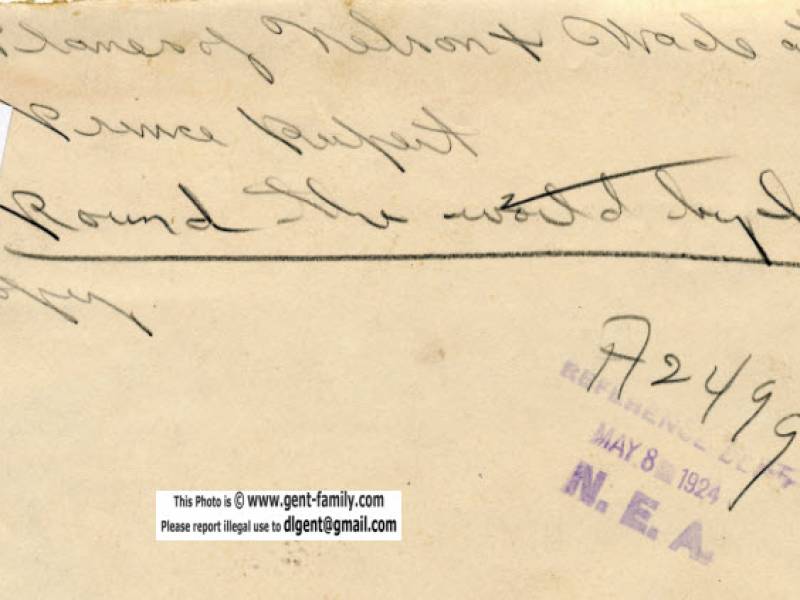 Planes of Nelson & Wade at
Prince Rupert
Round the world by
A2499
REFERENCE DEPT
MAY 8 1924
N. E. A.
This Photo is © www.gent-family.com
Please report illegal use to dlgent@gmail.com